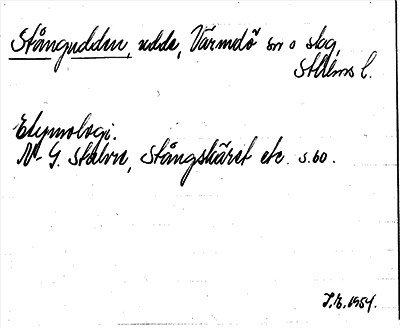 Stångudden, udde, Värmdö sn o skg,
Sthlms l.
Etymologi.
N-G. Stålne, Stångskäret etc. s. 60.
J.E. 1954.